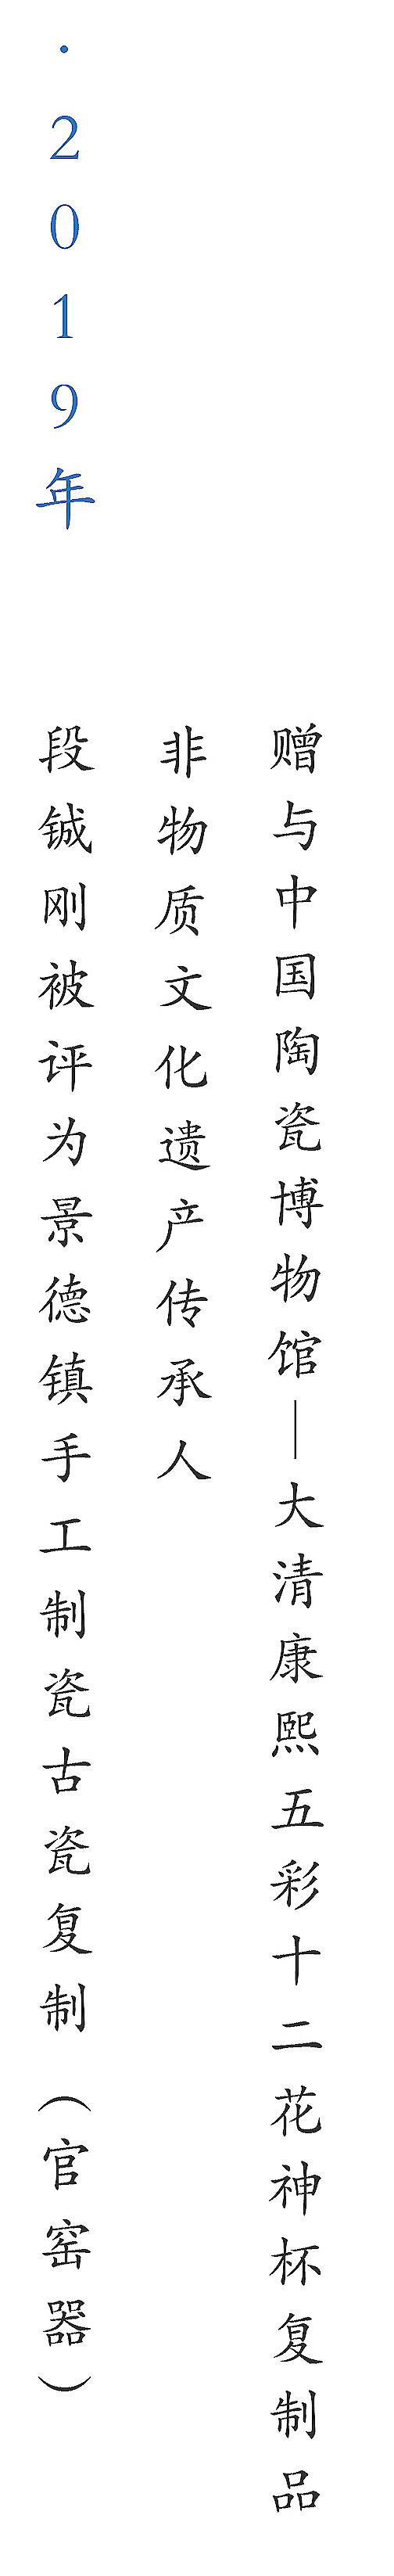 ·2019年
段铖刚被评为景德镇手工制瓷古瓷复制（官窑器）
非物质文化遗产传承人
赠与中国陶瓷博物馆—大清康熙五彩十二花神杯复制品